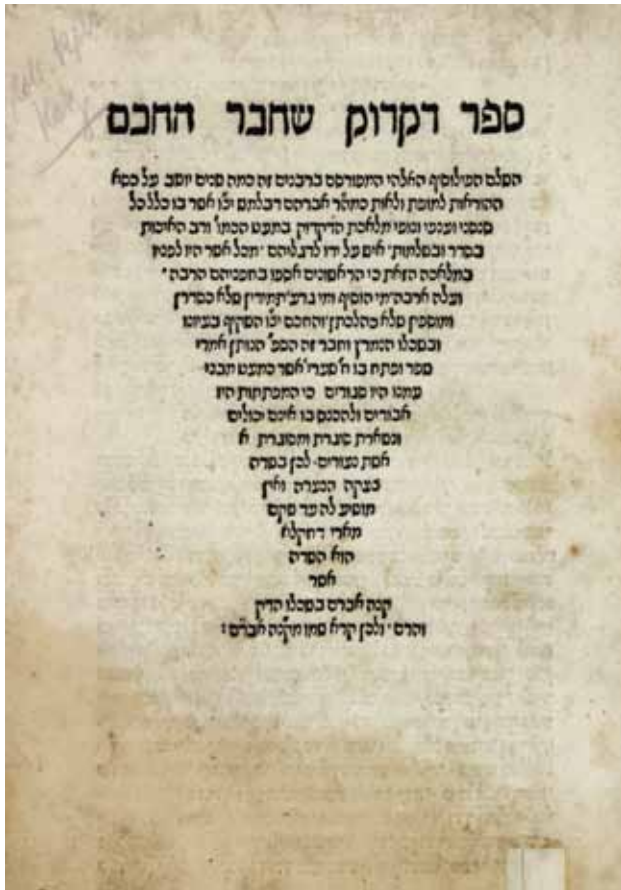 ספר דקדוק שחבר החכם
השלם הפילוסוף האלהי המפורסם ברבנים זה כמה שנים יושב על כסא
ההוראות למופת ולאות כמהר אברהם דבלמש יצו אשר בו כלל כל
שרשי וענפי וגופי מלאכת הדקדוק במעט הכמו׳ ורב האיכות
בסדר ובשלמות׳ איש על ידו לדגליהם ׳ מכל אשר היו לפניו
במלאכה הזאת כי הראשונים אספו בחפניהם הרבה ׳
ועלה ארבה׳ מי הוסיף ומי גרע׳ תמידין שלא כסדרן
ומוספין שלא כהלכתן׳ והחכם יצו השקיף בעיונו
ובשכלו הנמרץ וחבר זה הספ׳ הנותן אמרי
שפר ופתח בו ח׳ שערי׳ אשר כמעט מבני
עמנו היו סגורים כי המפתחות היו
אבודים ולהכנס בו אינם יכולים
ונשארת סוגרת ומסוגרת א
אשת נעורים׳ לכן בשדה
צעקה הנערה ואין
מושיע לה עד שקם
מארי דחקלא
הוא השדה
אשר
קנה אברם בשכלו הדק
והדס׳ ולכן קרא שמו מקנה אברם :